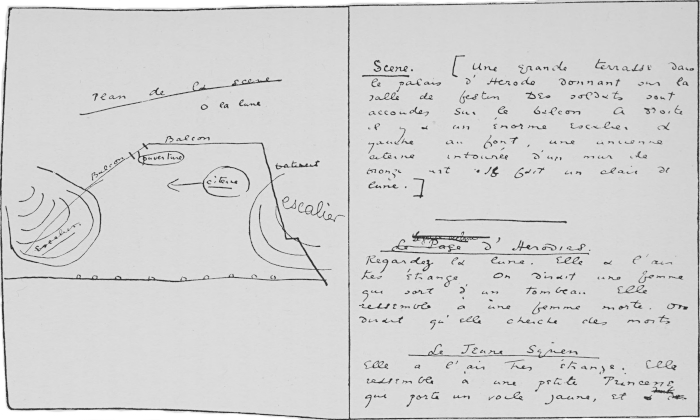 Plan de la scene
O la lune
Balcon
Balcon
ouverture
citerne
batiment
escalier
Escalier
Scene. [Une grande terrasse dans
le palais d'Herode donnant sur la
salle de festin Des soldats sont
accoudes sur le balcon A droite
il y a un énorme escalier à
gauche au font, une ancienne
citerne entourée d'un mur de
bronze vert Il fait un clair de
lune.]
Le Page d'Herodias.
Regardez la lune. Elle a l'air
très étrange On dirait une femme
qui sort d'un tombeau Elle
ressemble à une femme morte. On
dirait qu'elle cherche des morts
Le Jeune Syrien
Elle a l'air très étrange. Elle
ressemble à une petite Princesse
qui porte un voile jaune, et